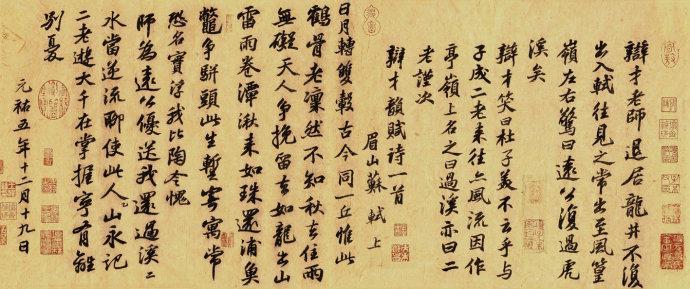 辯才老師退居龍井不復
出入軾往見之常出至風篁
嶺左右驚曰遠公復過虎
溪矣
辯才笑曰杜子美不云乎與
子成二老來往亦風流因作
亭嶺上名之曰過溪亦曰二
老謹次
辯才韻賦詩一首
眉山蘇軾上
日月轉雙轂古今同一丘惟此
鶴骨老凜然不知秋去住兩
無礙天人爭挽留去如龍出山
雷雨卷潭湫來如珠還浦魚
鼈爭駢頭此生蹔寄寓常
恐名實浮我比陶令愧
師為遠公優送我還過溪〻
水當逆流聊使此人山永記
二老遊大千在掌握寧有離
別憂
元祐五年十二月十九日